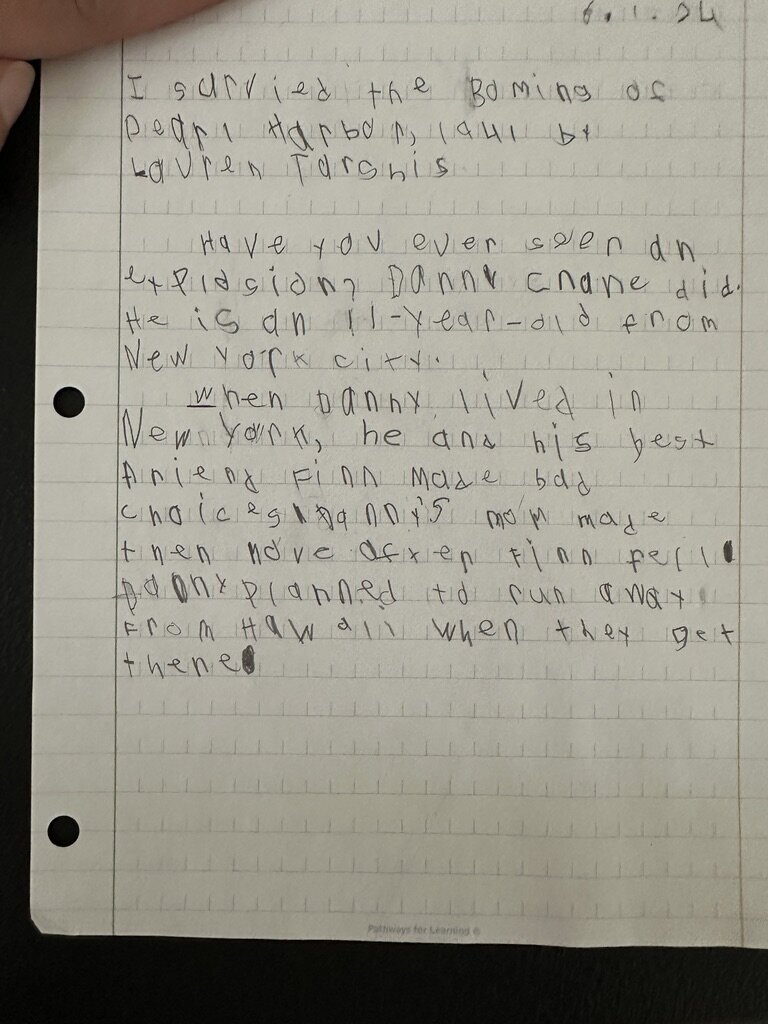 6.1.24
I survied the Boming of
Pearl Harbor, 1941 by
Lauren Tarshis.
Have you ever seen an
explosion? Danny Crane did.
He is an 11-year-old from
New York City.
When Danny lived in
New York, he and his best
friend Finn made bad
choices. Danny's mom made
then move after Finn fell.
Danny planned to run away
from Hawaii when they get
there.
Pathways for Learning ®